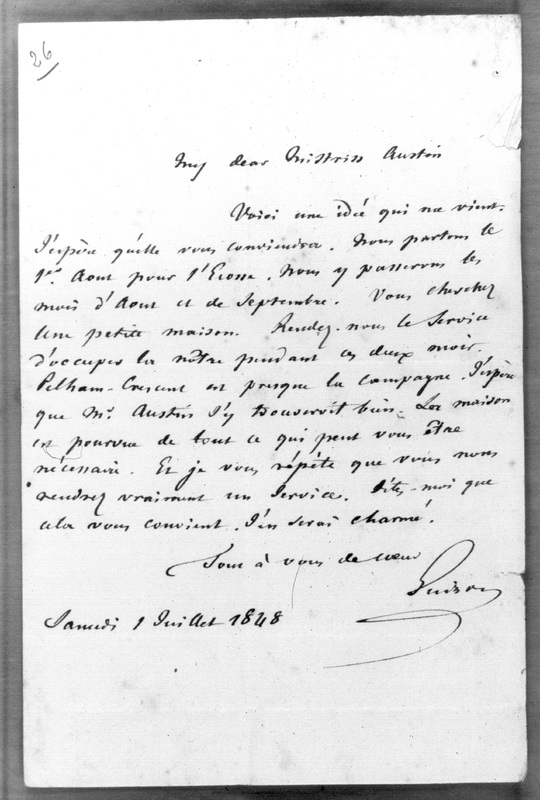 26
My dear Mistriss Austin
Voici une idée qui me vient.
J'espère qu'elle vous conviendra. Nous partons le
1er Aout pour l'Ecosse. Nous y passerons les
mois d'Aout et de Septembre. Vous cherchez
une petite maison. Rendez-nous le service
d'occuper la nôtre pendant ces deux mois.
Pelham-Crescent est presque la campagne. J'espère
que Mr. Austin s'y trouveroit bien. La maison
est pourvue de tout ce qui peut vous être
nécessaire. Et je vous répète que vous nous
rendrez vraiment un service. Dites-moi que
cela vous convient. J'en serai charmé.
Tout à vous de coeur
Guizot
Samedi 1 Juillet 1848